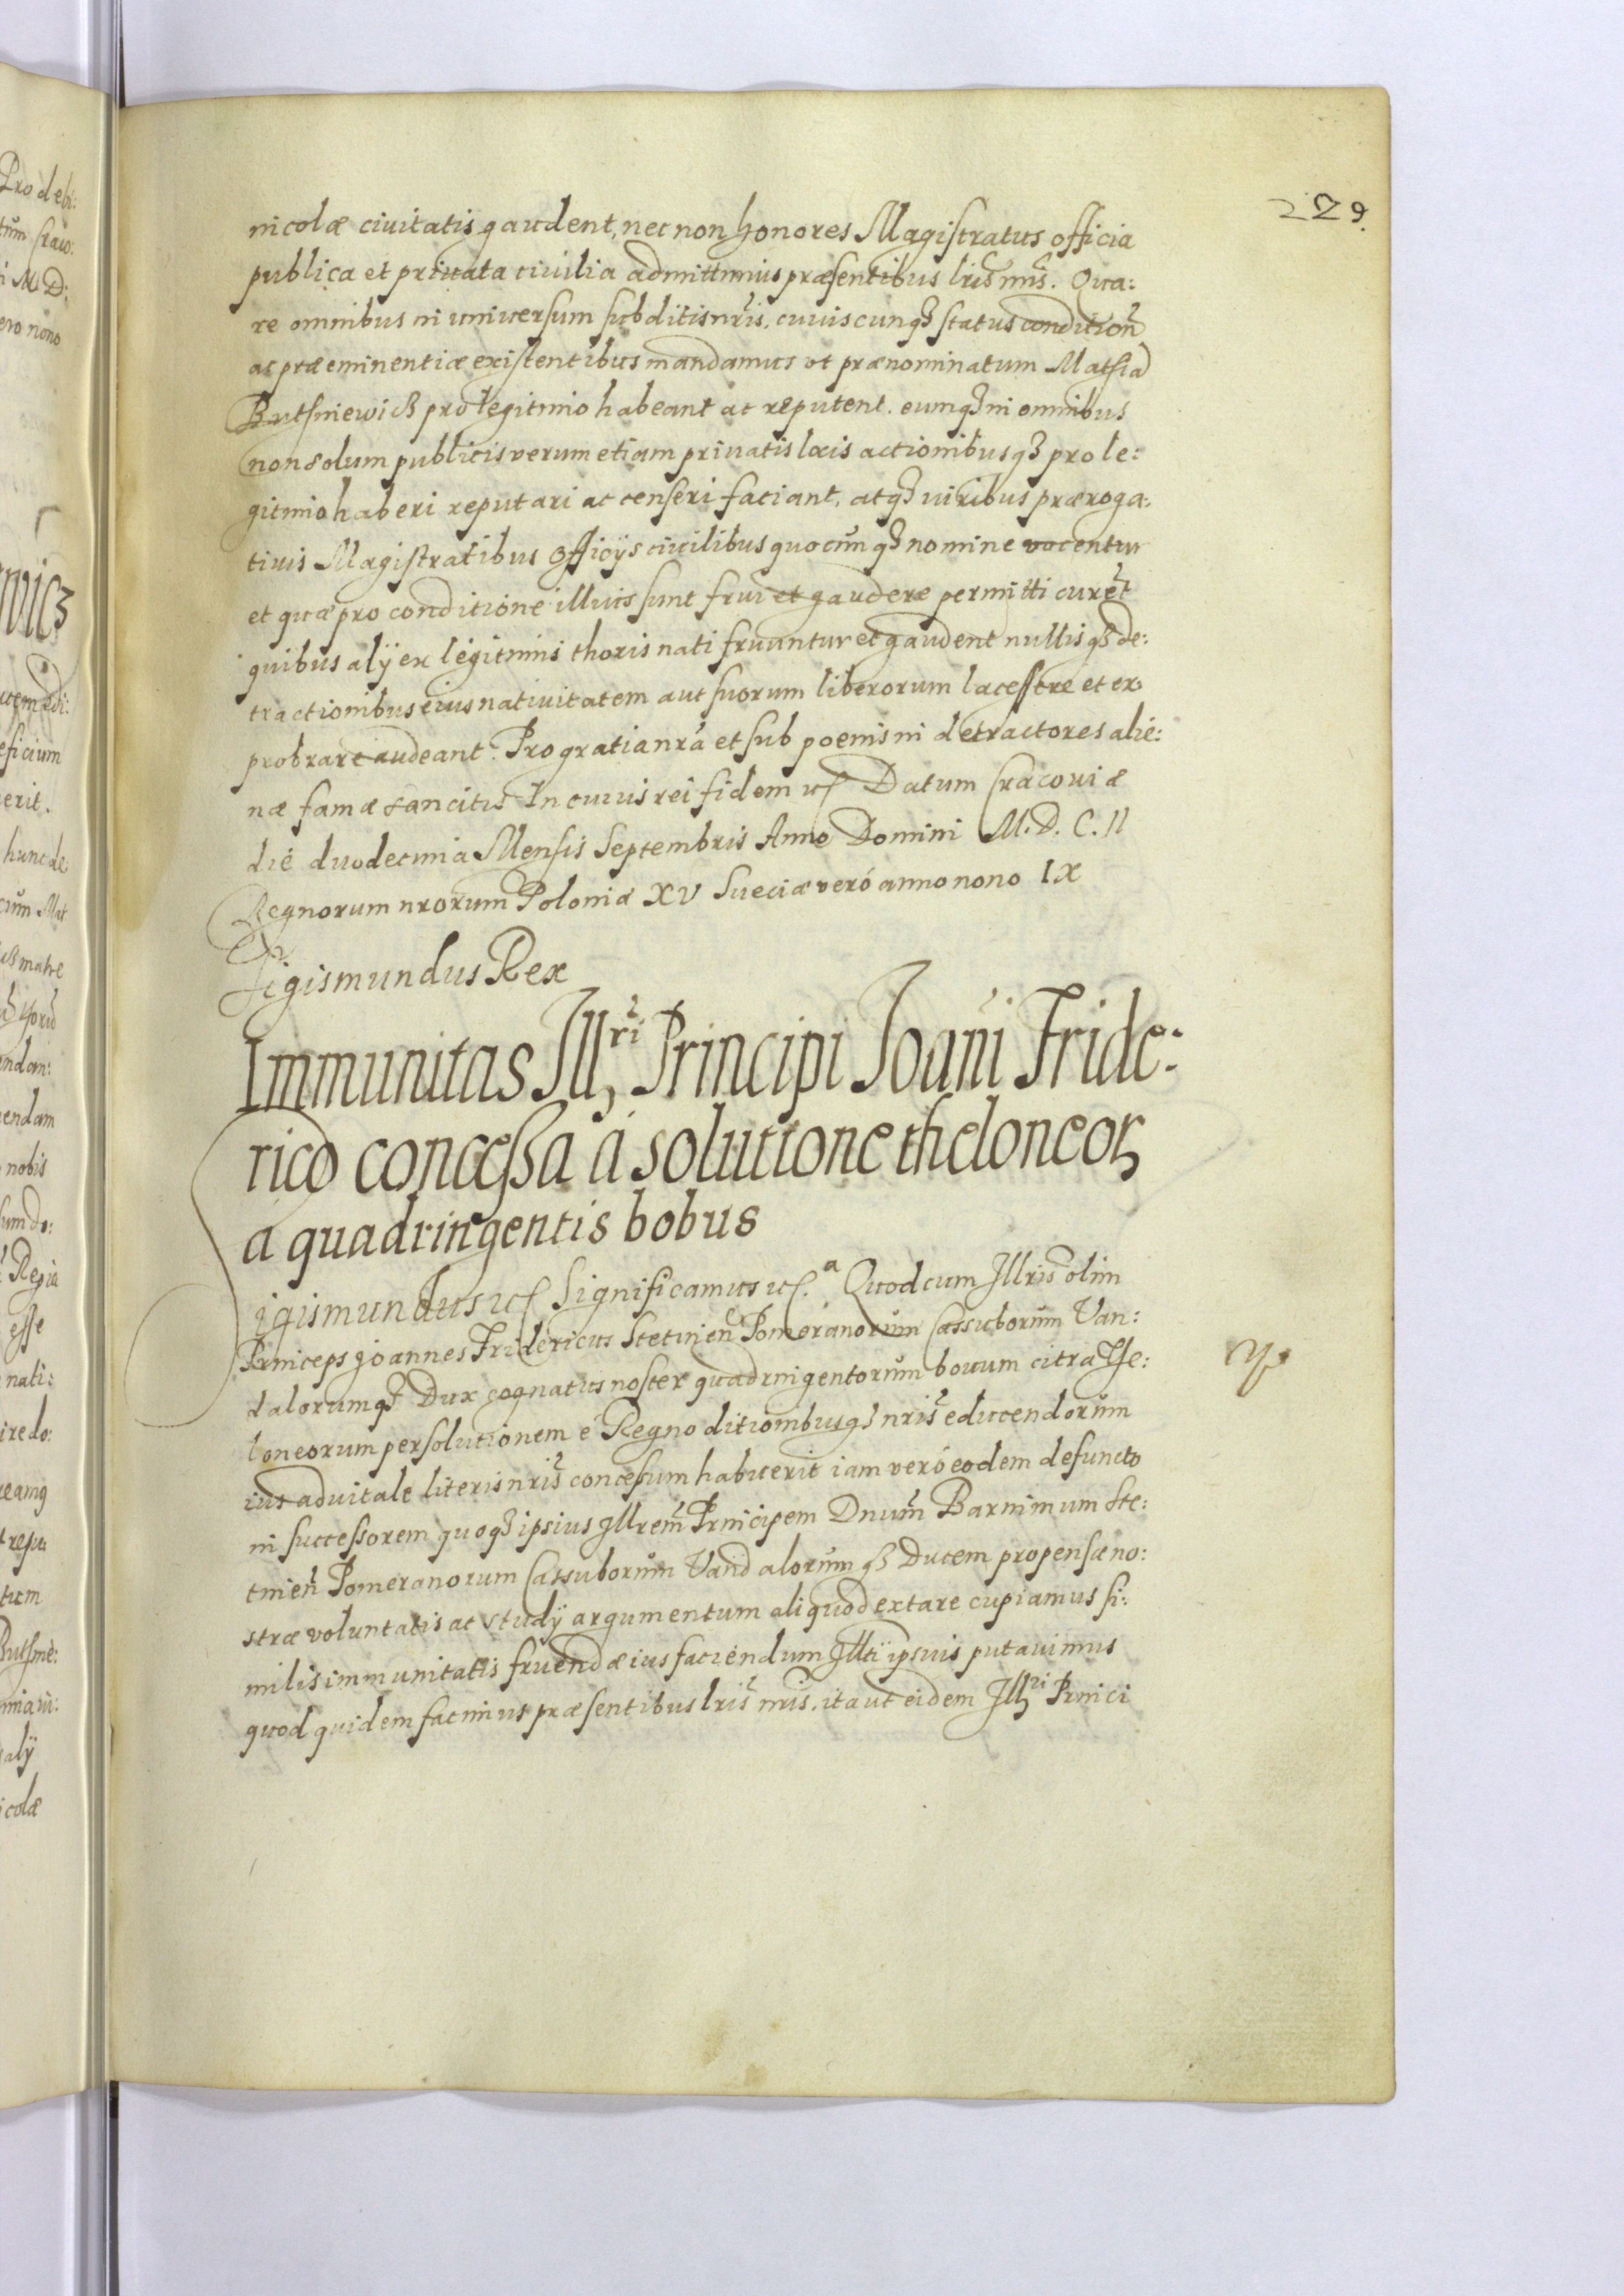 229.
nicolæ civitatis gaudent, nec non honores Magistratus officia
publica et privata civilia admittimus præsentibus lris nris. Qua:
re omnibus in universum subditis nris, cuiuscunq3 status condition
ac præeminentiæ existentibus mandamus ut prænominatum Mathia
Buthniewicz pro legitimo habeant ac reputent. eumq3 in omnibus
non solum publicis verum etiam privatis locis actionibusq3 pro le:
gitimo haberi reputari ac censeri faciant, atq3 iuribus præroga:
tivis Magistratibus officijs civilibus quocunq3 nomine vocentur
et quæ pro conditione illius sunt frui et gaudere permitti curet
quibus alij ex legitimis thoris nati fruuntur et gaudent nullisq3 de:
tractionibus eius nativitatem aut suorum liberorum lacessere et ex:
probrare audeant. Pro gratia nra et sub poenis in detractores alie:
næ famæ sancitis In cuius rei fidem etc Datum Cracoviæ
die duodecima Mensis Septembris Anno Domini M.D.C.II
Regnorum nrorum Poloniæ XV Sueciæ veró anno nono IX
Sigismundus Rex
Immunitas Illri Principi Joani Fride:
rico concessa á solutione theloneor
á quadringentis bobus
Sigismundus etc Significamus etc.a Quod cum Illris olim
Princeps Joannes Fridericus Stetinen Pomeranorum Cassuborum Van:
dalorumq3 Dux cognatus noster quadringentorum bovum citra The:
loneorum persolutionem é Regno ditionibusq3 nris educendorum
ius advitale literis nris concessum habuerit iam veró eodem defuncto
in successorem quoq3 ipsius Illrem Principem Dnum Barnimum Ste:
tinen Pomeranorum Cassuborum Vandalorumq3 Ducem propensæ no:
stræ voluntatis ac studij argumentum aliquod extare cupiamus si:
milis immunitatis fruendæ ius faciendum Illti ipsius putavimus
quod quidem facimus præsentibus lris nris, ita ut eidem Illri Princi